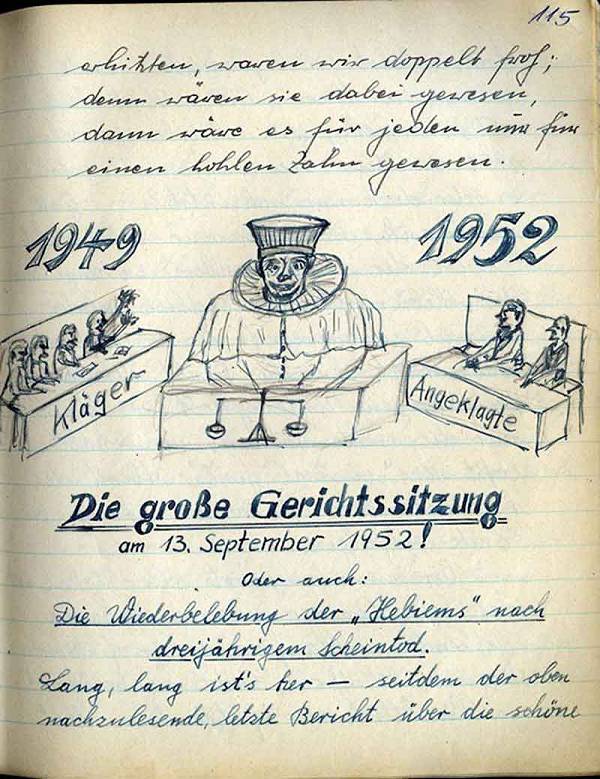 115
erhitzten, waren wir doppelt froh;
denn wären sie dabei gewesen,
dann wäre es für jeden nur für
einen hohlen Zahn gewesen.
1949
1952
Kläger
Angeklagte
Die große Gerichtssitzung
am 13. September 1952!
Oder auch:
Die Wiederbelebung der „Hebiems" nach
dreijährigem Scheintod.
Lang, lang ist's her — seitdem der oben
nachzulesende, letzte Bericht über die schöne